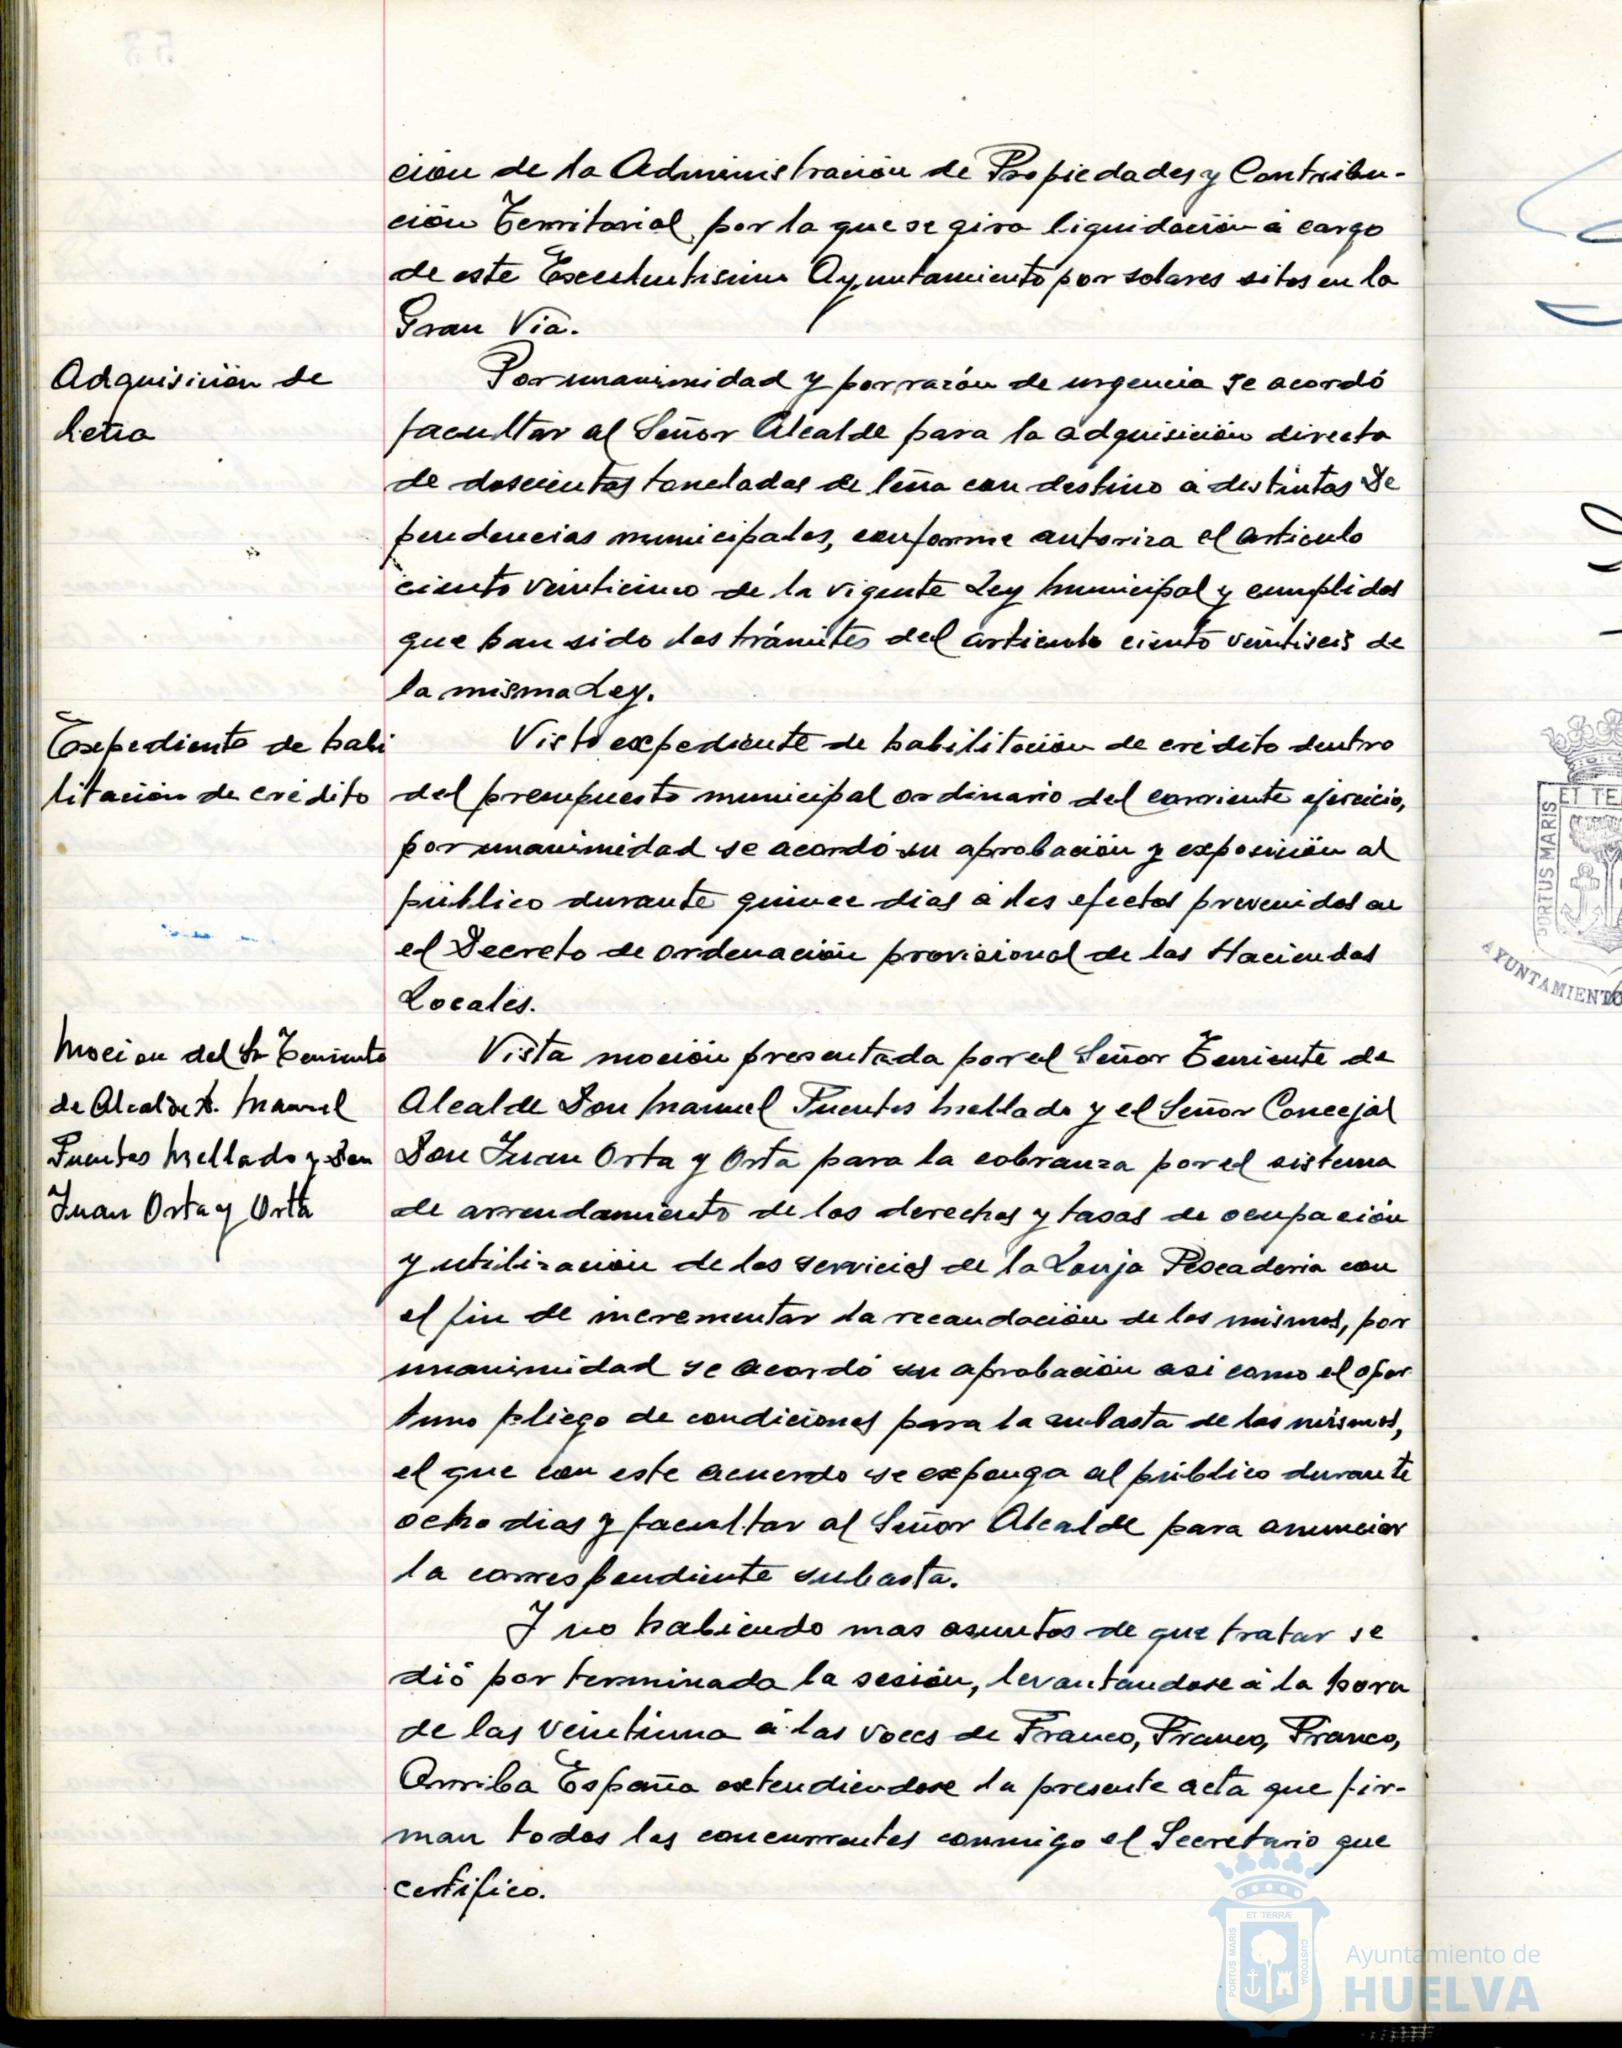 ción de la Administración de Propiedades y Contribu-
ción Territorial por la que se gira liquidación á cargo
de este Excelentisimo Ayuntamiento por solares sitos en la
Gran Via.
Adquisición de
leña
Por unanimidad y por razón de urgencia se acordó
facultar al Señor Alcalde para la adquisición directa
de doscientas toneladas de leña con destino a distintas De
pendencias municipales, conforme autoriza el articulo
ciento veinticinco de la vigente Ley Municipal y cumplidos
que han sido los trámites del articulo ciento veintiseis de
la misma Ley.
Expediente de habi
litación de crédito
Visto expediente de habilitación de crédito dentro
del presupuesto municipal ordinario del corriente ejercicio,
por unanimidad se acordó su aprobación y exposición al
público durante quince dias á los efectos prevenidos en
el Decreto de ordenación provisional de las Haciendas
Locales.
Mocion del Sr Teniente
de Alcalde D. Manuel
Fuentes Mellado y Don
Juan Orta y Orta
Vista moción presentada por el Señor Teniente de
Alcalde Don Manuel Fuentes Mellado y el Señor Concejal
Don Juan Orta y Orta para la cobranza por el sistema
de arrendamiento de los derechos y tasas de ocupación
y utilización de los servicios de la Lonja Pescaderia con
el fin de incrementar la recaudación de los mismos, por
unanimidad se acordó su aprobación asi como el opor
tuno pliego de condiciones para la subasta de los mismos,
el que con este acuerdo se exponga al público durante
ocho dias y facultar al Señor Alcalde para anunciar
la correspondiente subasta.
Y no habiendo mas asuntos de que tratar se
dió por terminada la sesión, levantandose á la hora
de las veintiuna á las voces de Franco, Franco, Franco,
Arriba España extendiendose la presente acta que fir-
man todos los concurrentes conmigo el Secretario que
certifico.
ET TE
PORTUS MARIS
AYUNTAMIENTO
ET TERRÆ
PORTUS MARIS
CUSTODIA
Ayuntamiento de
HUELVA